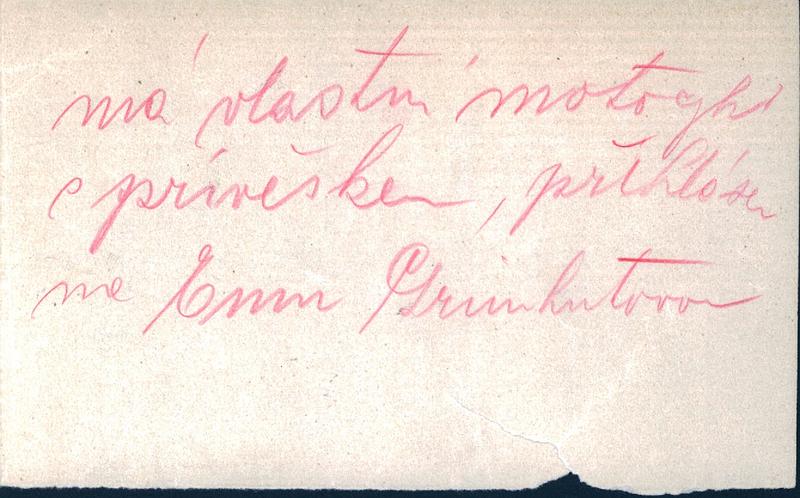 má vlastní motocykl
s přívěskem, přihlášen
na Emu Grünhutovou